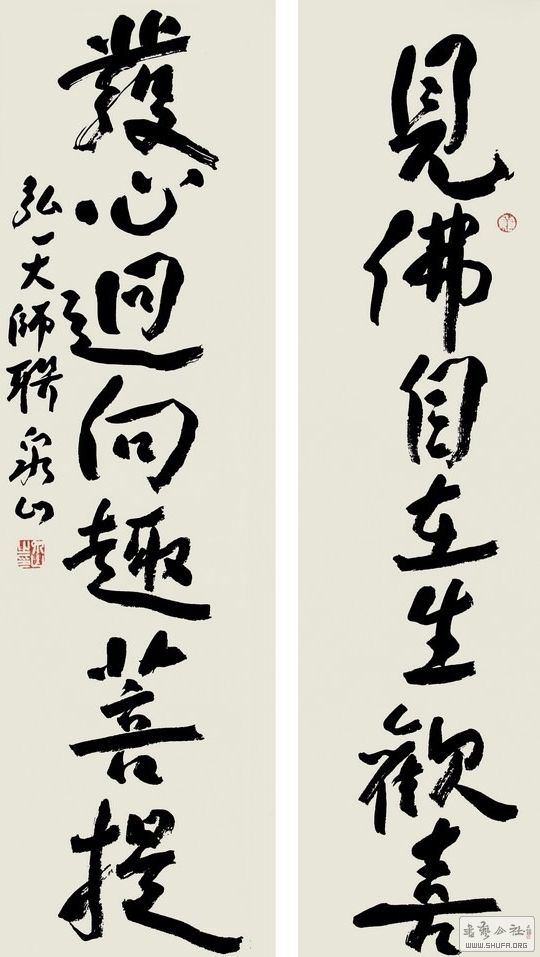 見佛自在生歡喜
發心迴向趣菩提
弘一大師聯 泉山
書藝公社
WWW.SHUFA.ORG